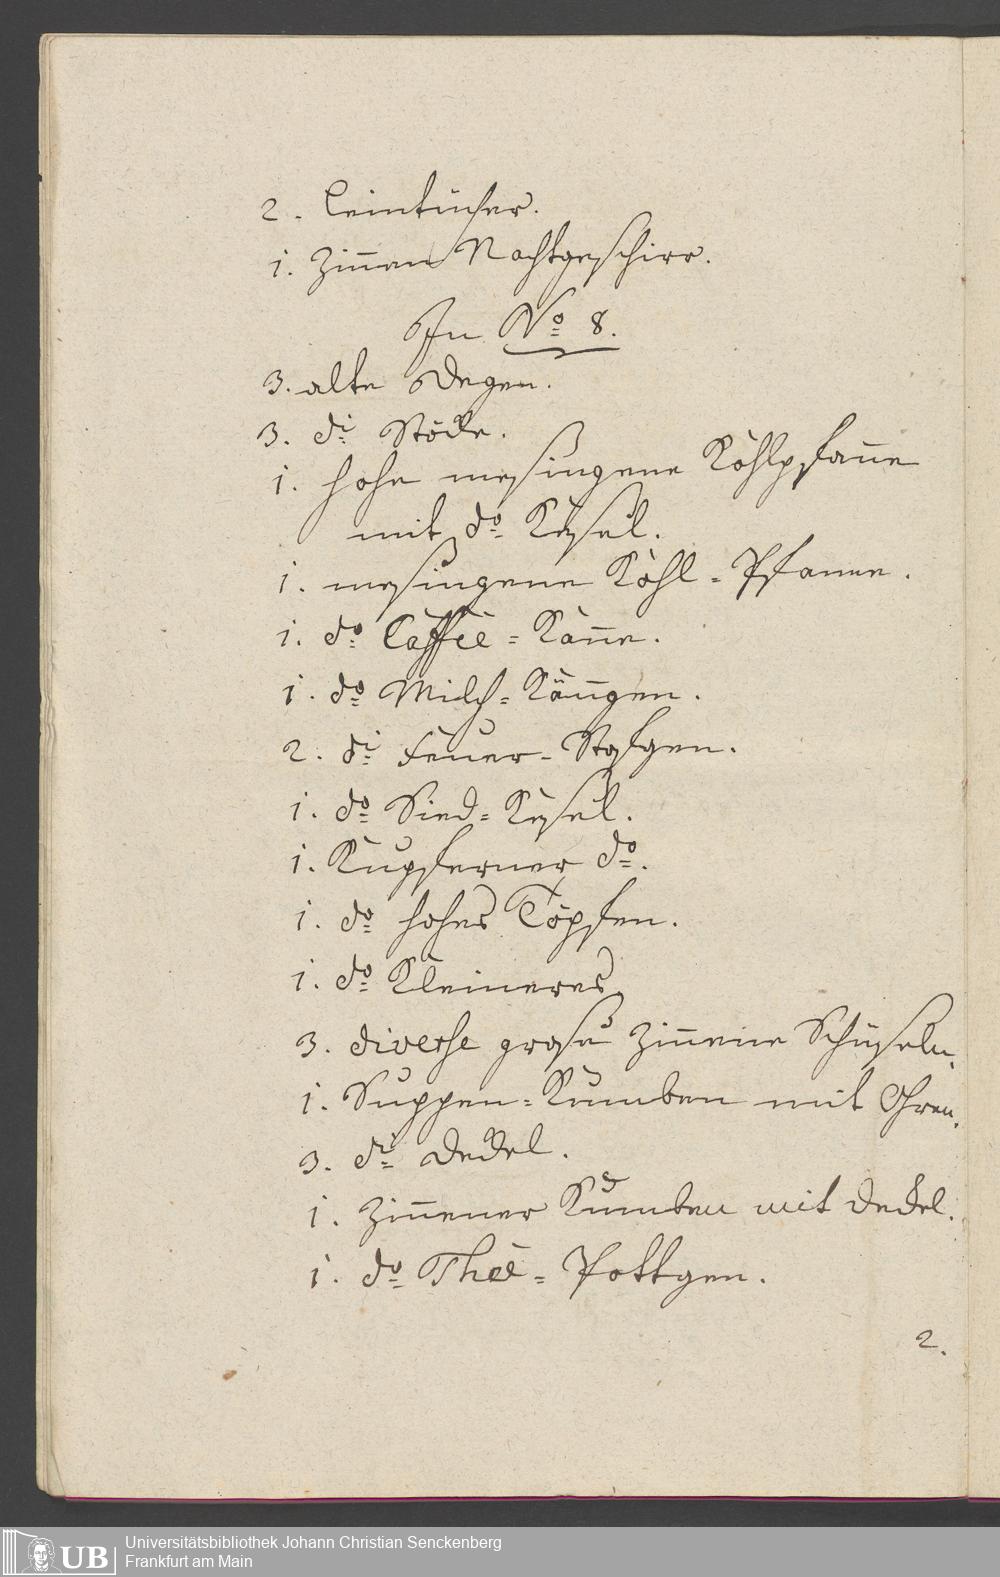 2. Leintücher.
1. Zin̄en Nachtgeschirr.
In No 8.
3. alte Degen.
3. di Stöcke.
1. hohe messingene Kohlpfan̄e
mit do Kessel.
1. messingene Kohl-Pfanne.
1. do Caffee-Kan̄e.
1. do Milch-Kän̄gen.
2. di Feuer-Stofgen.
1. do Sied-Kessel.
1. Kupferner do.
1. do hohes Töpfen.
1. do Kleineres.
3. diverse grose Zin̄eine Schüseln.
1. Suppen-Kumben mit Ohren.
3. di Deckel.
1. Zin̄ener Kumben mit Deckel.
1. do Thee-Pottgen.
2.
UB Universitätsbibliothek Johann Christian Senckenberg
Frankfurt am Main